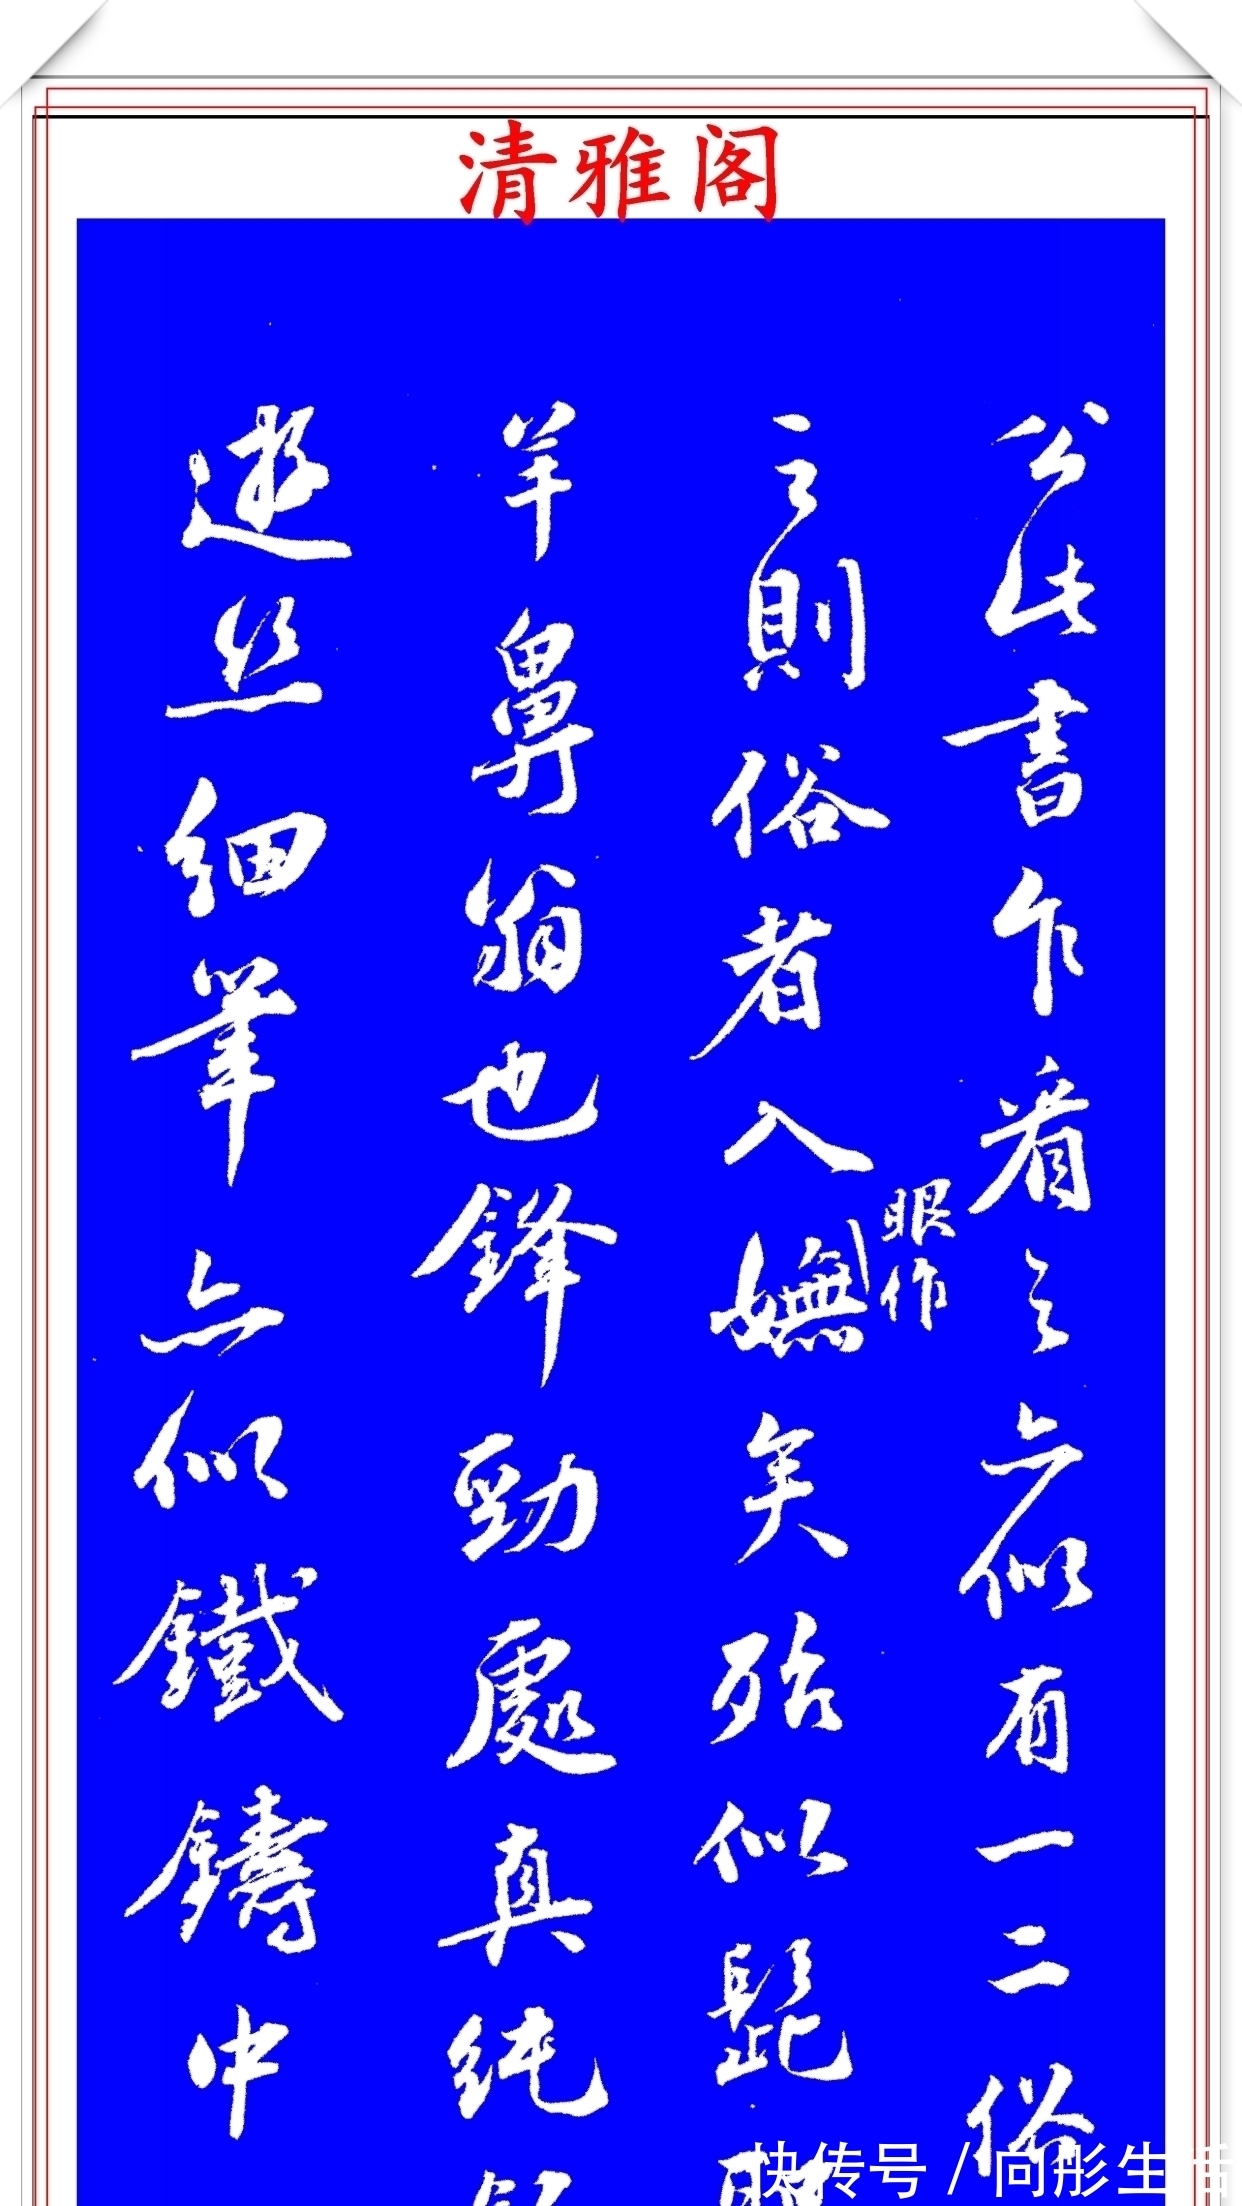 清雅阁
公此书乍看之亦似有一二俗
之則俗者入嫵矣殆似髭
眼作
羊鼻翁也鋒勁處真純
遊丝細筆亦似鐵鑄中
快传号 / 向彤生活